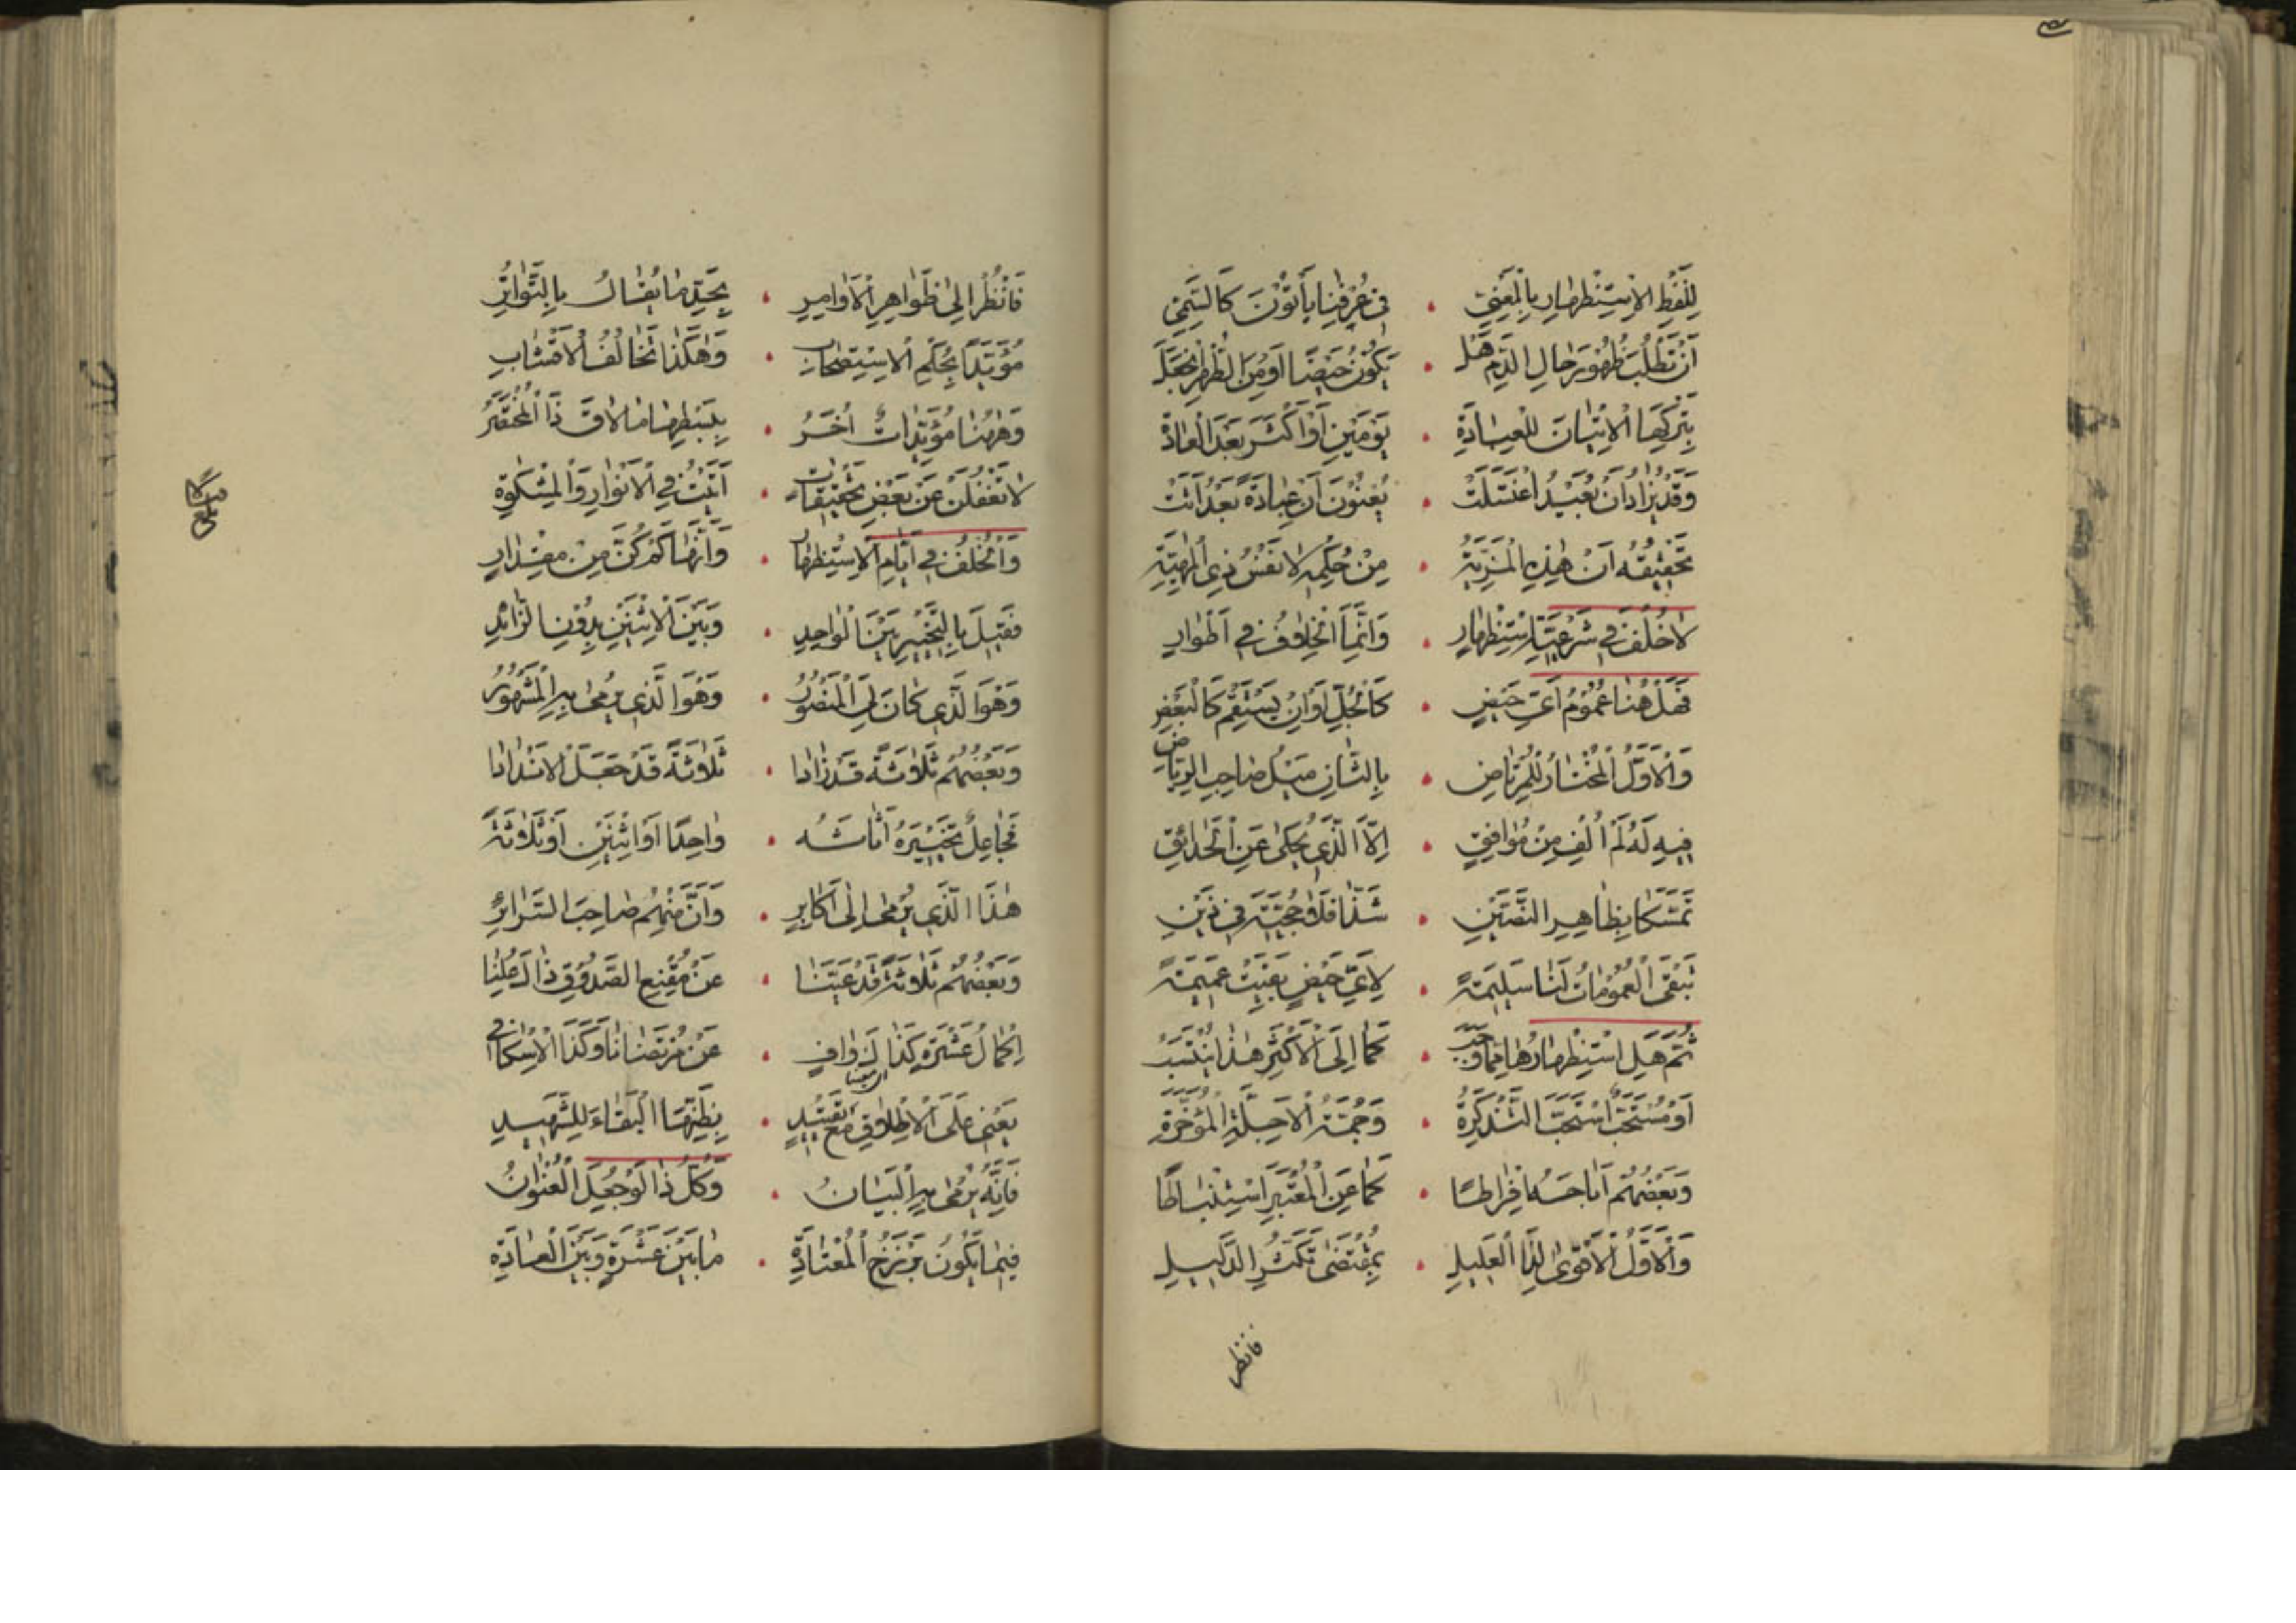 لِلَفْظِ الْاِسْتِظْهٰارِ بِالْمَعْنِيّ • في عُرْفِنٰا يَأْتُونَ كَالتَّيَمُّنِ
اَنْ تَطْلُبَ ظُهُورَ حٰالِ الدَّمِ هَلْ • يَكُونُ حَيْضًا اَوْ مِنَ الطُّهْرِ
بِتَرْكِهَا الْاِتْيٰانَ لِلْعِبٰادَةِ • يَوْمَيْنِ اَوْ اَكْثَرَ بَعْدَ الْعٰادَةْ
وَقَدْ يُرٰادُ اَنْ بُعَيْدُ اغْتَسَلَتْ • يُعْنُونَ اَنَّ عِبٰادَةً بَعْدُ اَتَتْ
تَحْقِيقُهُ اَنَّ هٰذِهِ الْمَزِيَّةْ • مِنْ حُكْمِهِ لٰا نَفْسُ ذِي الْمَهِيَّةِ
لٰا خُلْفَ في شَرْعِيَّةِ اسْتِظْهٰارِ • وَاِنَّمَا الْخِلٰافُ في اَطْوٰارِ
فَهَلْ هُنٰا عُمُومُ اَيِّ حَيْضٍ • كَالْجُلِّ اَوْ اِنْ يَسْتَقِمْ كَالْبَعْضِ
وَالْاَوَّلُ الْمُخْتٰارُ لِلْمُرْتٰاضِ • بِالثّٰانِ مَيْلُ صٰاحِبِ الرِّيٰاضِ
فِيهِ لَهُ لَمْ اُلْفِ مِنْ مُوٰافِقٍ • اِلَّا الَّذي يُحْكىٰ عَنِ الْحَدٰائِقِ
تَمَسُّكًا بِظٰاهِرِ النَّصَّيْنِ • شَذّٰا فَلٰا حُجِّيَّةَ في ذَيْنِ
تَبْقَى الْعُمُومٰاتُ لَنٰا سَلِيمَةً • لِاَيِّ حَيْضٍ بَقِيَتْ عَمِيمَةً
ثُمَّ هَلِ اسْتِظْهٰارُهٰا مِمّٰا وَجَبْ • كَمٰا اِلَى الْاَكْثَرِ هٰذَا انْتَسَبْ
اَوْ مُسْتَحَبٌّ اسْتَحَبَّ التَّذْكِرَةْ • وَجُمْلَةُ الْاَجِلَّةِ الْمُؤَخَّرَةْ
وَبَعْضُهُمْ اَبٰاحَهُ اِفْرٰاطًا • كَمٰا عَنِ الْمُعْتَبَرِ اسْتِنْبٰاطًا
وَالْاَوَّلُ الْاَقْوىٰ لِذَا الْعَلِيلِ • بِمُقْتَضىٰ تَكَثُّرِ الدَّلِيلِ
فانظر
فَانْظُرْ اِلىٰ ظَوٰاهِرِ الْاَوٰامِرِ • بِحَدِّ مٰا يُقٰالُ بِالتَّوٰاتُرِ
مُؤَيَّدًا بِحُكْمِ الْاِسْتِصْحٰابِ • وَهٰكَذٰا تَخٰالُفُ الْاَقْشٰابِ
وَهٰهُنٰا مُؤَيِّدٰاتٌ اُخَرُ • بِبَسْطِهٰا مٰا لٰاقَ ذَا الْمُخْتَصَرُ
لٰا تَغْفُلَنْ عَنْ بَعْضِ تَحْقِيقٰاتٍ • اَتَيْتُ في الْاَنْوٰارِ وَالْمِشْكٰوةِ
وَالْخُلْفُ في اَيّٰامِ الْاِسْتِظْهٰارِ • وَاَنَّهٰا كَمْ كُنَّ مِنْ مِقْدٰارِ
فَقِيلَ بِالتَّخْيِيرِ بَيْنَ الْوٰاحِدِ • وَبَيْنَ الْاِثْنَيْنِ بِدُونِ الزّٰائِدِ
وَهْوَ الَّذي كٰانَ لِيَ الْمَنْصُورُ • وَهْوَ الَّذي يُرْمىٰ بِهِ الْمَشْهُورُ
وَبَعْضُهُمْ ثَلٰاثَةً قَدْ زٰادٰا • ثَلٰاثَةً قَدْ جَعَلَ الْاَنْدٰادٰا
فَجٰاعِلٌ تَخْيِيرَهُ اَثٰاثَهُ • وٰاحِدًا اَوْ اثْنَيْنِ اَوْ ثَلٰاثَةً
هٰذَا الَّذي يُرْمىٰ اِلىٰ اَكٰابِرِ • وَاَنَّ مِنْهُمْ صٰاحِبَ السَّرٰائِرِ
وَبَعْضُهُمْ ثَلٰاثَةً قَدْ عَيَّنٰا • عَنْ مُقْنِعِ الصَّدُوقِ ذٰا
اِكْمٰالُ عَشْرَةٍ كَذٰا لَوٰافٍ • عَنْ مُرْتَضٰانٰا وَكَذَا الْاِسْكٰافي
يَعْني عَلَى الْاِطْلٰاقِ مَعْ تَقَيُّدٍ • بِظَنِّهَا الْبَقٰاءَ لِلشَّهِيدِ
فَاِنَّهُ يُرْمىٰ بِهِ الْبَيٰانُ • وَكُلُّ ذٰا لَوْ جُعِلَ الْعُنْوٰانُ
فِيمٰا يَكُونُ بَرْزَخَ الْمُعْتٰادَةِ • مٰا بَيْنَ عَشْرَةٍ وَبَيْنَ الْعٰادَةِ